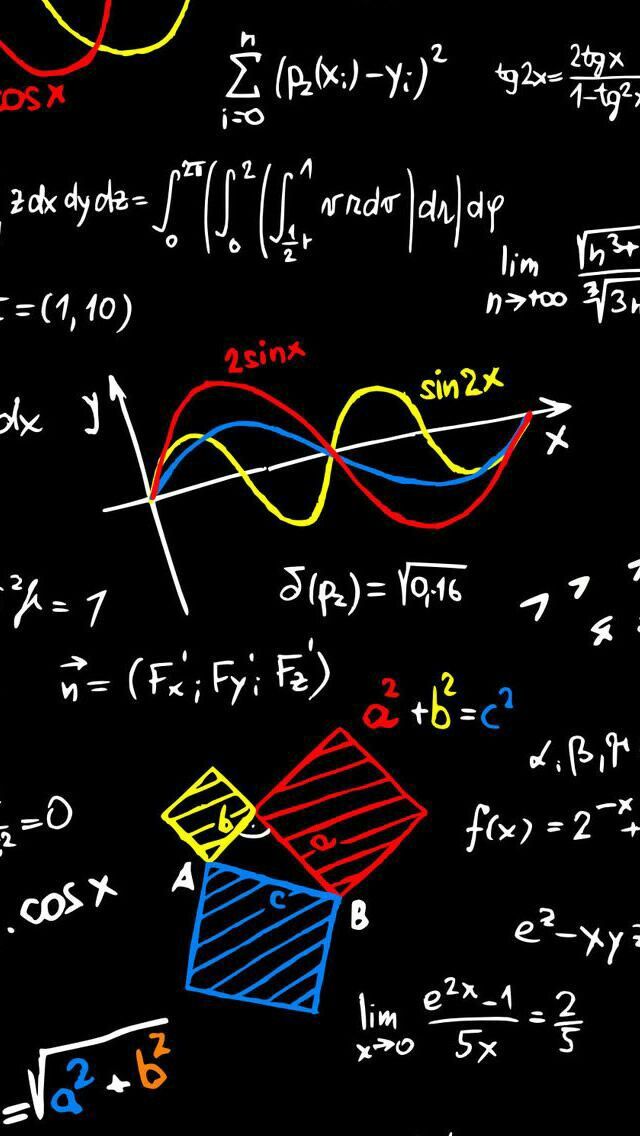 cos x
n
∑ (p₂(xᵢ)−yᵢ)²
i=0
tg2x= 2tgx / 1−tg²x
z dx dy dz = ∫₀^2π (∫₀^2 (∫_½r^1 v r dv |dr| dφ
lim √n³+
n→+∞ ³√3n
=(1,10)
2sinx
sin2x
dx
y
x
²μ = 1
δ(p₂) = √0,16
n⃗ = (Fx′; Fy′; Fz′)
a² + b² = c²
α, β, γ
=0
f(x) = 2⁻ˣ+
b
a
A
c
B
. cos x
eᶻ − xyz
lim e²ˣ−1 / 5x = 2/5
x→0
= √a² + b²